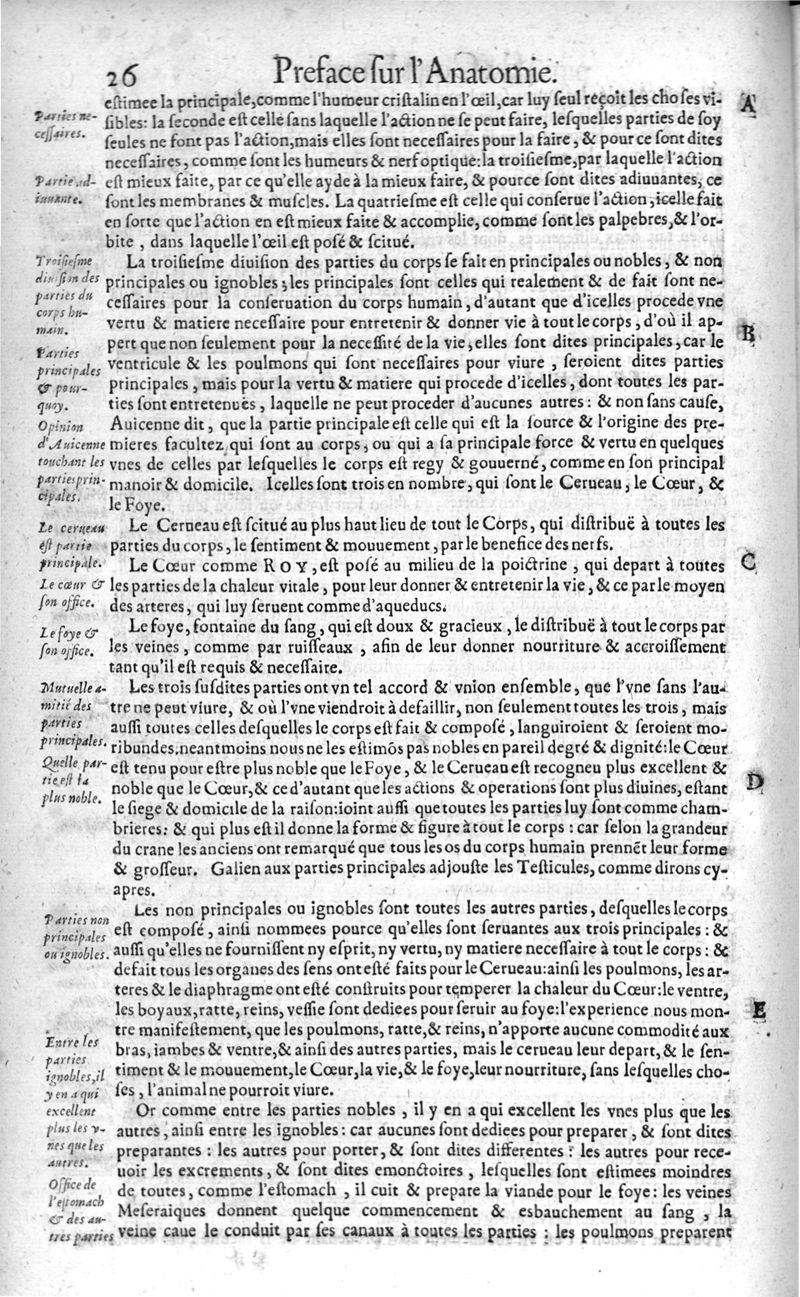 26 Preface ſur l'Anatomie.
eſtimee la principale, comme l'humeur criſtalin en l'œil, car luy ſeul reçoit les choſes vi-
ſibles: la ſeconde eſt celle ſans laquelle l'action ne ſe peut faire, leſquelles parties de ſoy
ſeules ne font pas l'action, mais elles ſont neceſſaires pour la faire, & pour ce ſont dites
neceſſaires, comme ſont les humeurs & nerf optique: la troiſieſme, par laquelle l'action
eſt mieux faite, par ce qu'elle ayde à la mieux faire, & pource ſont dites adiuuantes, ce
ſont les membranes & muſcles. La quatrieſme eſt celle qui conſerue l'action, icelle fait
en ſorte que l'action en eſt mieux faite & accomplie, comme ſont les palpebres, & l'or-
bite, dans laquelle l'œil eſt poſé & ſcitué.
La troiſieſme diuiſion des parties du corps ſe fait en principales ou nobles, & non
principales ou ignobles; les principales ſont celles qui realement & de fait ſont ne-
ceſſaires pour la conſeruation du corps humain, d'autant que d'icelles procede vne
vertu & matiere neceſſaire pour entretenir & donner vie à tout le corps, d'où il ap-
pert que non ſeulement pour la neceſſité de la vie, elles ſont dites principales, car le
ventricule & les poulmons qui ſont neceſſaires pour viure, ſeroient dites parties
principales, mais pour la vertu & matiere qui procede d'icelles, dont toutes les par-
ties ſont entretenuës, laquelle ne peut proceder d'aucunes autres: & non ſans cauſe,
Auicenne dit, que la partie principale eſt celle qui eſt la ſource & l'origine des pre-
mieres facultez qui ſont au corps, ou qui a ſa principale force & vertu en quelques
vnes de celles par leſquelles le corps eſt regy & gouuerné, comme en ſon principal
manoir & domicile. Icelles ſont trois en nombre, qui ſont le Cerueau, le Cœur, &
le Foye.
Le Cerueau eſt ſcitué au plus haut lieu de tout le Corps, qui diſtribuë à toutes les
parties du corps, le ſentiment & mouuement, par le benefice des nerfs.
Le Cœur comme ROY, eſt poſé au milieu de la poictrine, qui depart à toutes
les parties de la chaleur vitale, pour leur donner & entretenir la vie, & ce par le moyen
des arteres, qui luy ſeruent comme d'aqueducs.
Le foye, fontaine du ſang, qui eſt doux & gracieux, le diſtribuë à tout le corps par
les veines, comme par ruiſſeaux, afin de leur donner nourriture & accroiſſement
tant qu'il eſt requis & neceſſaire.
Les trois ſuſdites parties ont vn tel accord & vnion enſemble, que l'vne ſans l'au-
tre ne peut viure, & où l'vne viendroit à defaillir, non ſeulement toutes les trois, mais
auſſi toutes celles deſquelles le corps eſt fait & compoſé, languiroient & ſeroient mo-
ribundes. neantmoins nous ne les eſtimõs pas nobles en pareil degré & dignité: le Cœur
eſt tenu pour eſtre plus noble que le Foye, & le Cerueau eſt recogneu plus excellent &
noble que le Cœur, & ce d'autant que les actions & operations ſont plus diuines, eſtant
le ſiege & domicile de la raiſon: ioint auſſi que toutes les parties luy ſont comme cham-
brieres: & qui plus eſt il donne la forme & figure à tout le corps: car ſelon la grandeur
du crane les anciens ont remarqué que tous les os du corps humain prennẽt leur forme
& groſſeur. Galien aux parties principales adjouſte les Teſticules, comme dirons cy-
apres.
Les non principales ou ignobles ſont toutes les autres parties, deſquelles le corps
eſt compoſé, ainſi nommees pource qu'elles ſont ſeruantes aux trois principales: &
auſſi qu'elles ne fourniſſent ny eſprit, ny vertu, ny matiere neceſſaire à tout le corps: &
defait tous les organes des ſens ont eſté faits pour le Cerueau: ainſi les poulmons, les ar-
teres & le diaphragme ont eſté conſtruits pour temperer la chaleur du Cœur: le ventre,
les boyaux, ratte, reins, veſſie ſont dediees pour ſeruir au foye: l'experience nous mon-
tre manifeſtement, que les poulmons, ratte, & reins, n'apporte aucune commodité aux
bras, iambes & ventre, & ainſi des autres parties, mais le cerueau leur depart, & le ſen-
timent & le mouuement, le Cœur, la vie, & le foye, leur nourriture, ſans leſquelles cho-
ſes, l'animal ne pourroit viure.
Or comme entre les parties nobles, il y en a qui excellent les vnes plus que les
autres, ainſi entre les ignobles: car aucunes ſont dediees pour preparer, & ſont dites
preparantes: les autres pour porter, & ſont dites differentes: les autres pour rece-
uoir les excrements, & ſont dites emonctoires, leſquelles ſont eſtimees moindres
de toutes, comme l'eſtomach, il cuit & prepare la viande pour le foye: les veines
Meſeraiques donnent quelque commencement & esbauchement au ſang, la
veine caue le conduit par ſes canaux à toutes les parties: les poulmons preparent
Parties ne-
ceſſaires.
Partie ad-
iuuante.
Troiſieſme
diuiſion des
parties du
corps hu-
main.
Parties
principales
& pour-
quoy.
Opinion
d'Auicenne
touchant les
parties prin-
cipales.
Le cerueau
eſt partie
principale.
Le cœur &
ſon office.
Le foye &
ſon office.
Mutuelle a-
mitié des
parties
principales.
Quelle par-
tie eſt la
plus noble.
Parties non
principales
ou ignobles.
Entre les
parties
ignobles, il
y en a qui
excellent
plus les v-
nes que les
autres.
Office de
l'eſtomach
& des au-
tres parties
A
B
C
D
E